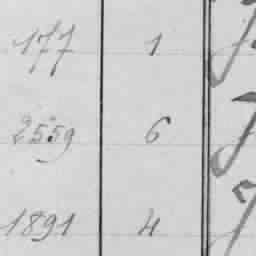 177 1
2559 6
1891 4